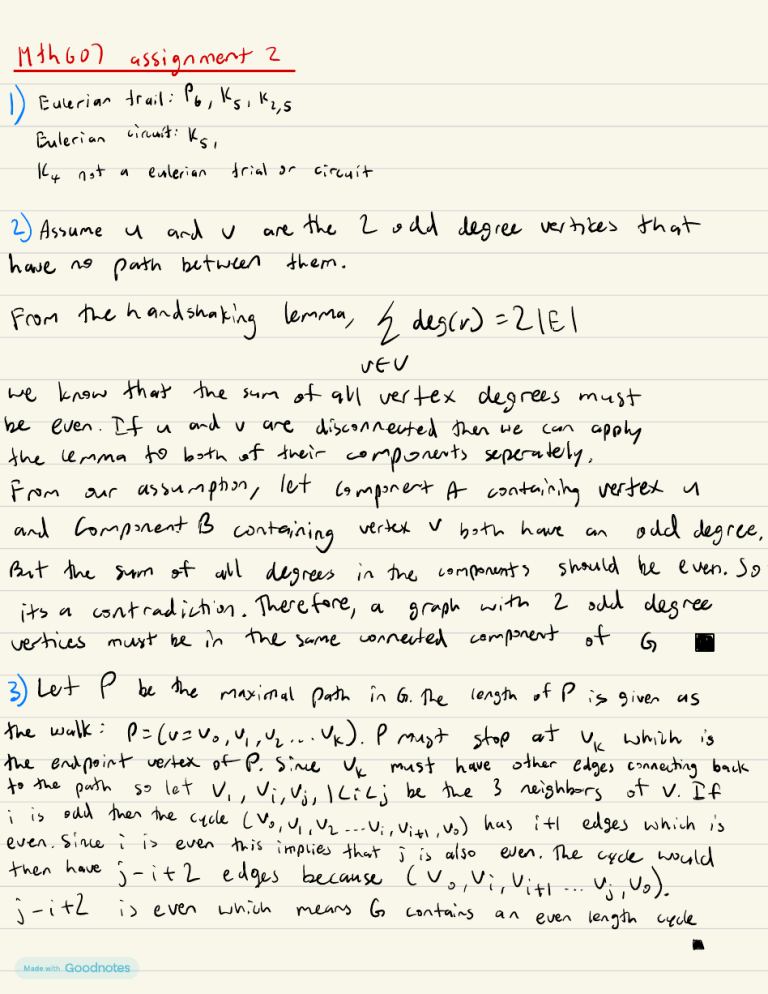 Mth607 assignment 2
1) Eulerian trail: P6, K5, K2,5
Eulerian circuit: K5,
K4 not a eulerian trial or circuit
2) Assume u and v are the 2 odd degree vertices that
have no path between them.
From the handshaking lemma, Σ deg(v) = 2|E|
v∈V
we know that the sum of all vertex degrees must
be even. If u and v are disconnected then we can apply
the lemma to both of their components seperately.
From our assumption, let component A containing vertex u
and Component B containing vertex v both have an odd degree,
But the sum of all degrees in the components should be even. So
its a contradiction. Therefore, a graph with 2 odd degree
vertices must be in the same connected component of G ■
3) Let P be the maximal path in G. The length of P is given as
the walk: P=(v=v0,v1,v2...vk). P must stop at vk which is
the endpoint vertex of P. Since vk must have other edges connecting back
to the path so let v1, vi, vj, 1<i<j be the 3 neighbors of v. If
i is odd then the cycle (v0,v1,v2...vi,vi+1,v0) has i+1 edges which is
even. Since i is even this implies that j is also even. The cycle would
then have j-i+2 edges because (v0,vi,vi+1...vj,v0).
j-i+2 is even which means G contains an even length cycle
■
Made with Goodnotes